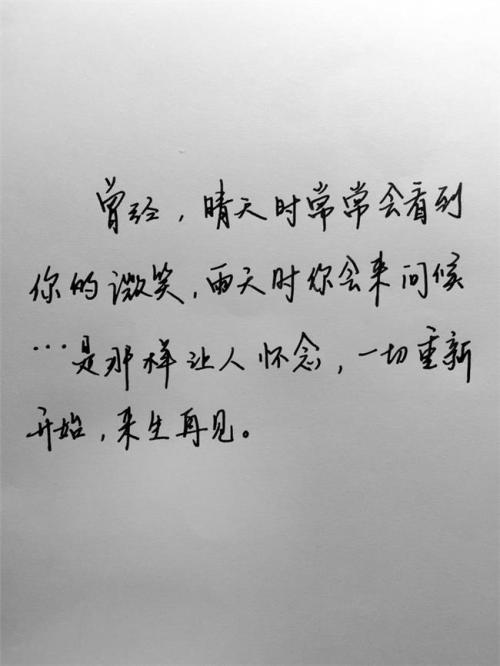 曾经，晴天时常常会看到
你的微笑，雨天时你会来问候
…是那样让人怀念，一切重新
开始，来生再见。